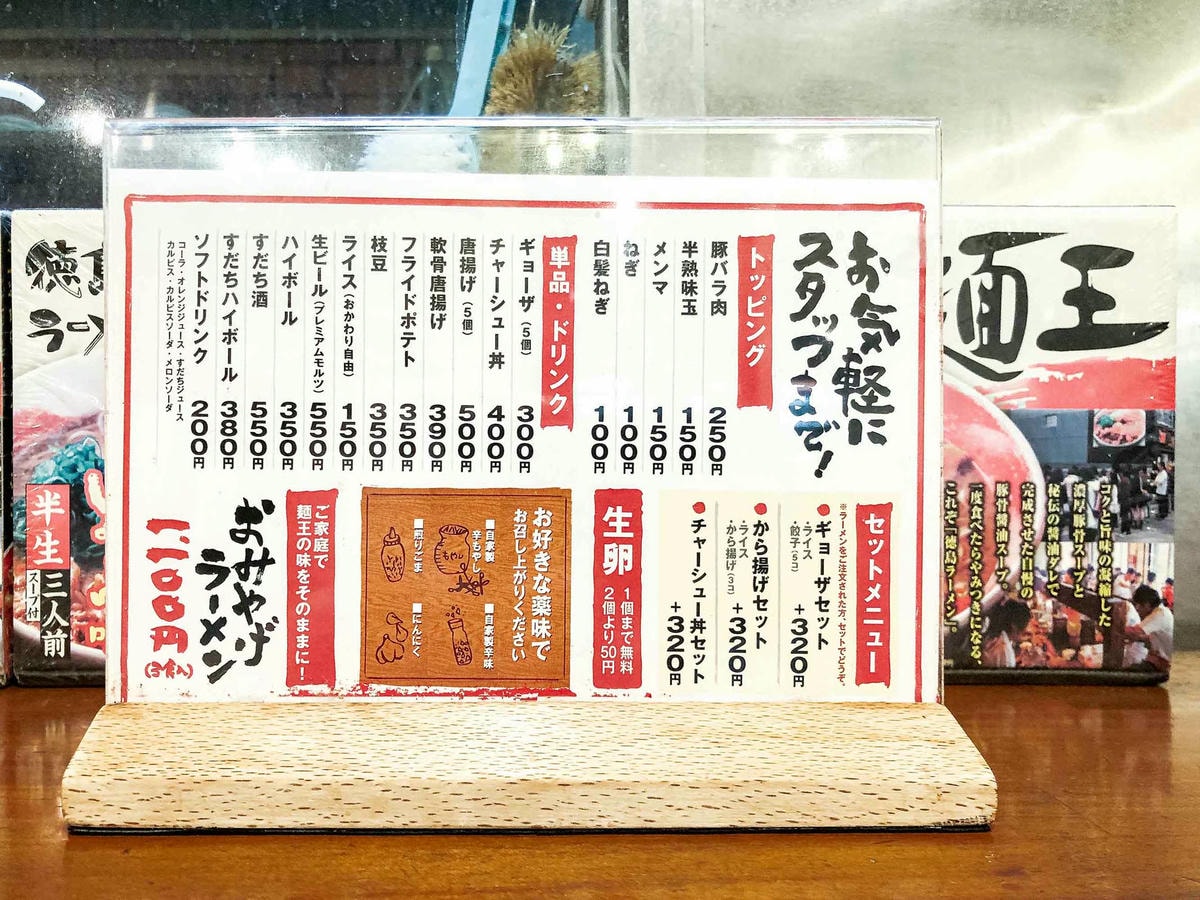 お気軽に
スタッフまで!
トッピング
豚バラ肉 250円
半熟味玉 150円
メンマ 150円
ねぎ 100円
白髪ねぎ 100円
単品・ドリンク
ギョーザ(5個) 300円
チャーシュー丼 400円
唐揚げ(5個) 500円
軟骨唐揚げ 390円
フライドポテト 350円
枝豆 350円
ライス(おかわり自由) 150円
生ビール(プレミアムモルツ) 550円
ハイボール 350円
すだち酒 550円
すだちハイボール 380円
ソフトドリンク 200円
コーラ・オレンジジュース・すだちジュース
カルピス・カルピスソーダ・メロンソーダ
セットメニュー
※ラーメンをご注文された方、セットでどうぞ。
●ギョーザセット +320円
・ライス
・餃子(5コ)
●から揚げセット +320円
・ライス
・から揚げ(3コ)
●チャーシュー丼セット +320円
生卵
1個まで無料
2個より50円
お好きな薬味で
お召し上がりください
■自家製
辛もやし
■自家製辛味
■煎りごま
■にんにく
ご家庭で
麺王の味をそのままに!
おみやげ
ラーメン
1,100円
(3食入)
麺王
コクと旨味の凝縮した
濃厚豚骨スープと
秘伝の醤油ダレで
完成させた自慢の
豚骨醤油スープ。
一度食べたらやみつきになる、
これぞ「徳島ラーメン」。
徳島
ラーメ
半生
三人前
スープ付